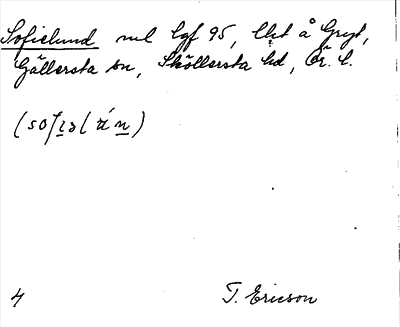 Sofielund nul lgf 95, lht å Gryt,
Gällersta sn, Sköllersta hd, Ör. l.
4
T. Ericson